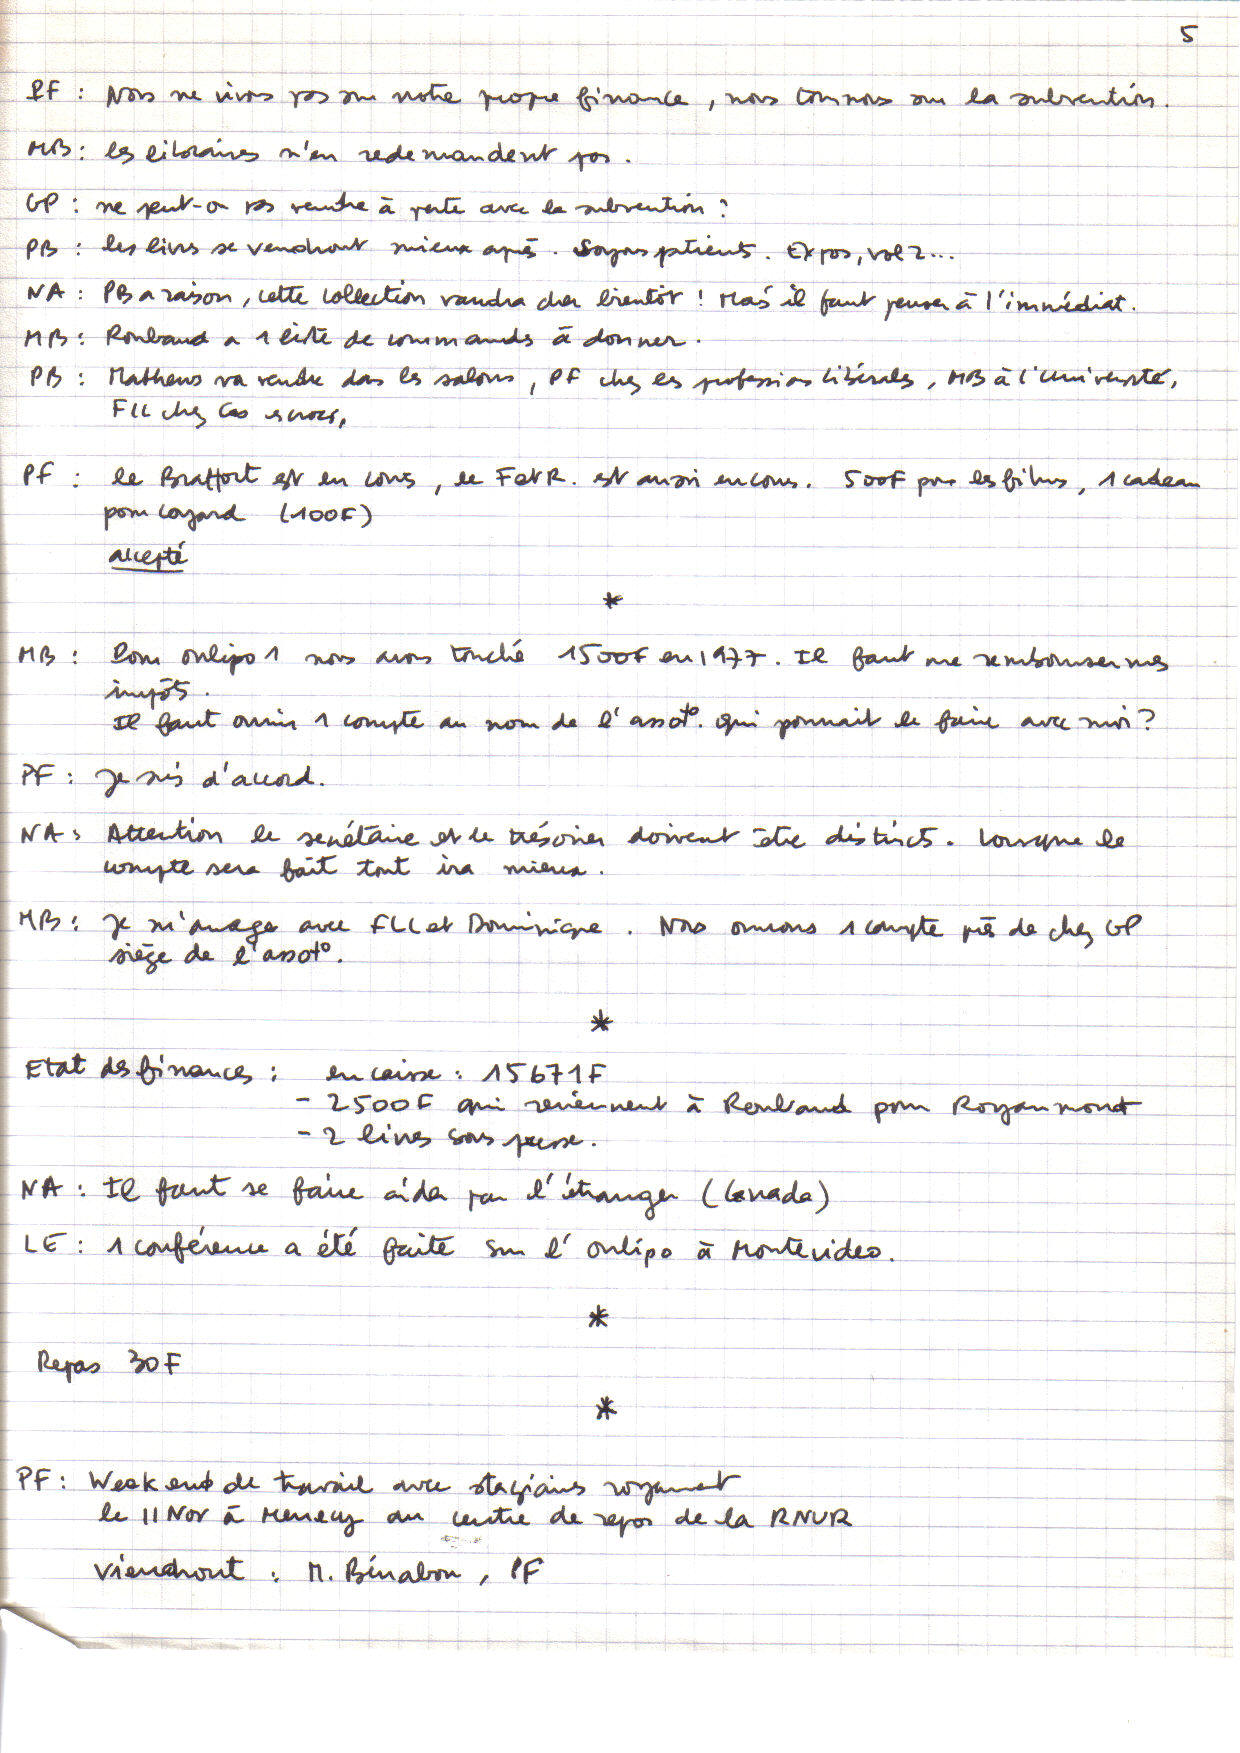 5
PF : Nous ne vivons pas sur notre propre finance, nous comptons sur la subvention.
MB : les libraires n'en redemandent pas.
GP : ne peut-on pas vendre à perte avec la subvention ?
PB : les livres se vendront mieux après. Soyons patients. Expos, vol 2...
NA : PB a raison, cette collection vaudra cher bientôt ! Mais il faut penser à l'immédiat.
MB : Roubaud a 1 liste de commandes à donner.
PB : Mathews va vendre dans les salons, PF chez les professions libérales, MB à l'Université,
FLL chez les escrocs,
PF : le Braffort est en cours, le F et R. est aussi en cours. 500F pour les films, 1 cadeau
pour Coyard (100F)
accepté
*
MB : Pour oulipo 1 nous avons touché 1500F en 1977. Il faut me rembourser mes
impôts.
Il faut ouvrir 1 compte au nom de l'assoto. qui pourrait le faire avec moi ?
PF : Je suis d'accord.
NA : Attention le secrétaire et le trésorier doivent être distincts. Lorsque le
compte sera fait tout ira mieux.
MB : Je m'arrange avec FLL et Dominique. Nous ouvrons 1 compte près de chez GP
siège de l'assoto.
*
Etat des finances : en caisse : 15671F
- 2500F qui reviennent à Roubaud pour Royaumont
- 2 livres sous presse.
NA : Il faut se faire aider par l'étranger (Canada)
LE : 1 conférence a été faite sur l'oulipo à Montevideo.
*
Repas 30F
*
PF : Week end de travail avec stagiaires royaumont
le 11 Nov à Mennecy au centre de repos de la RNUR
Viendront : M. Bénabou, PF